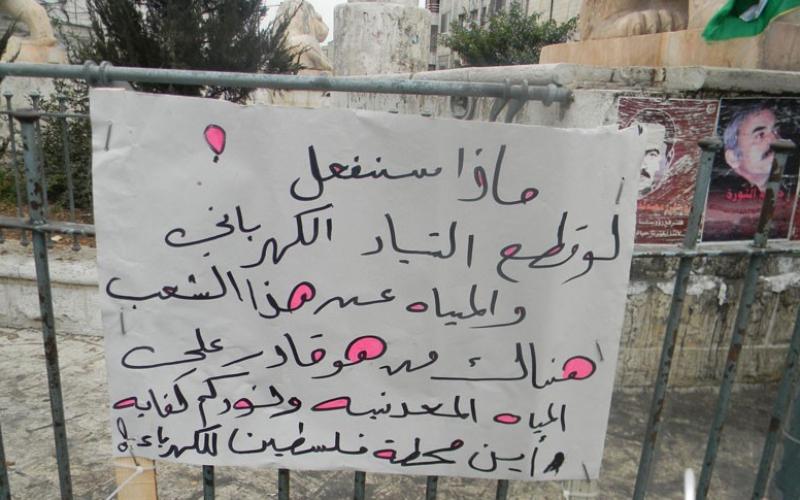 ماذا سنفعل !
لو قطع التيار الكهربائي
والمياه عن هذا الشعب
هناك من هو قادر على
المياه المعدنيه
أين محطة فلسطين للكهرباء ؟!
الثورة